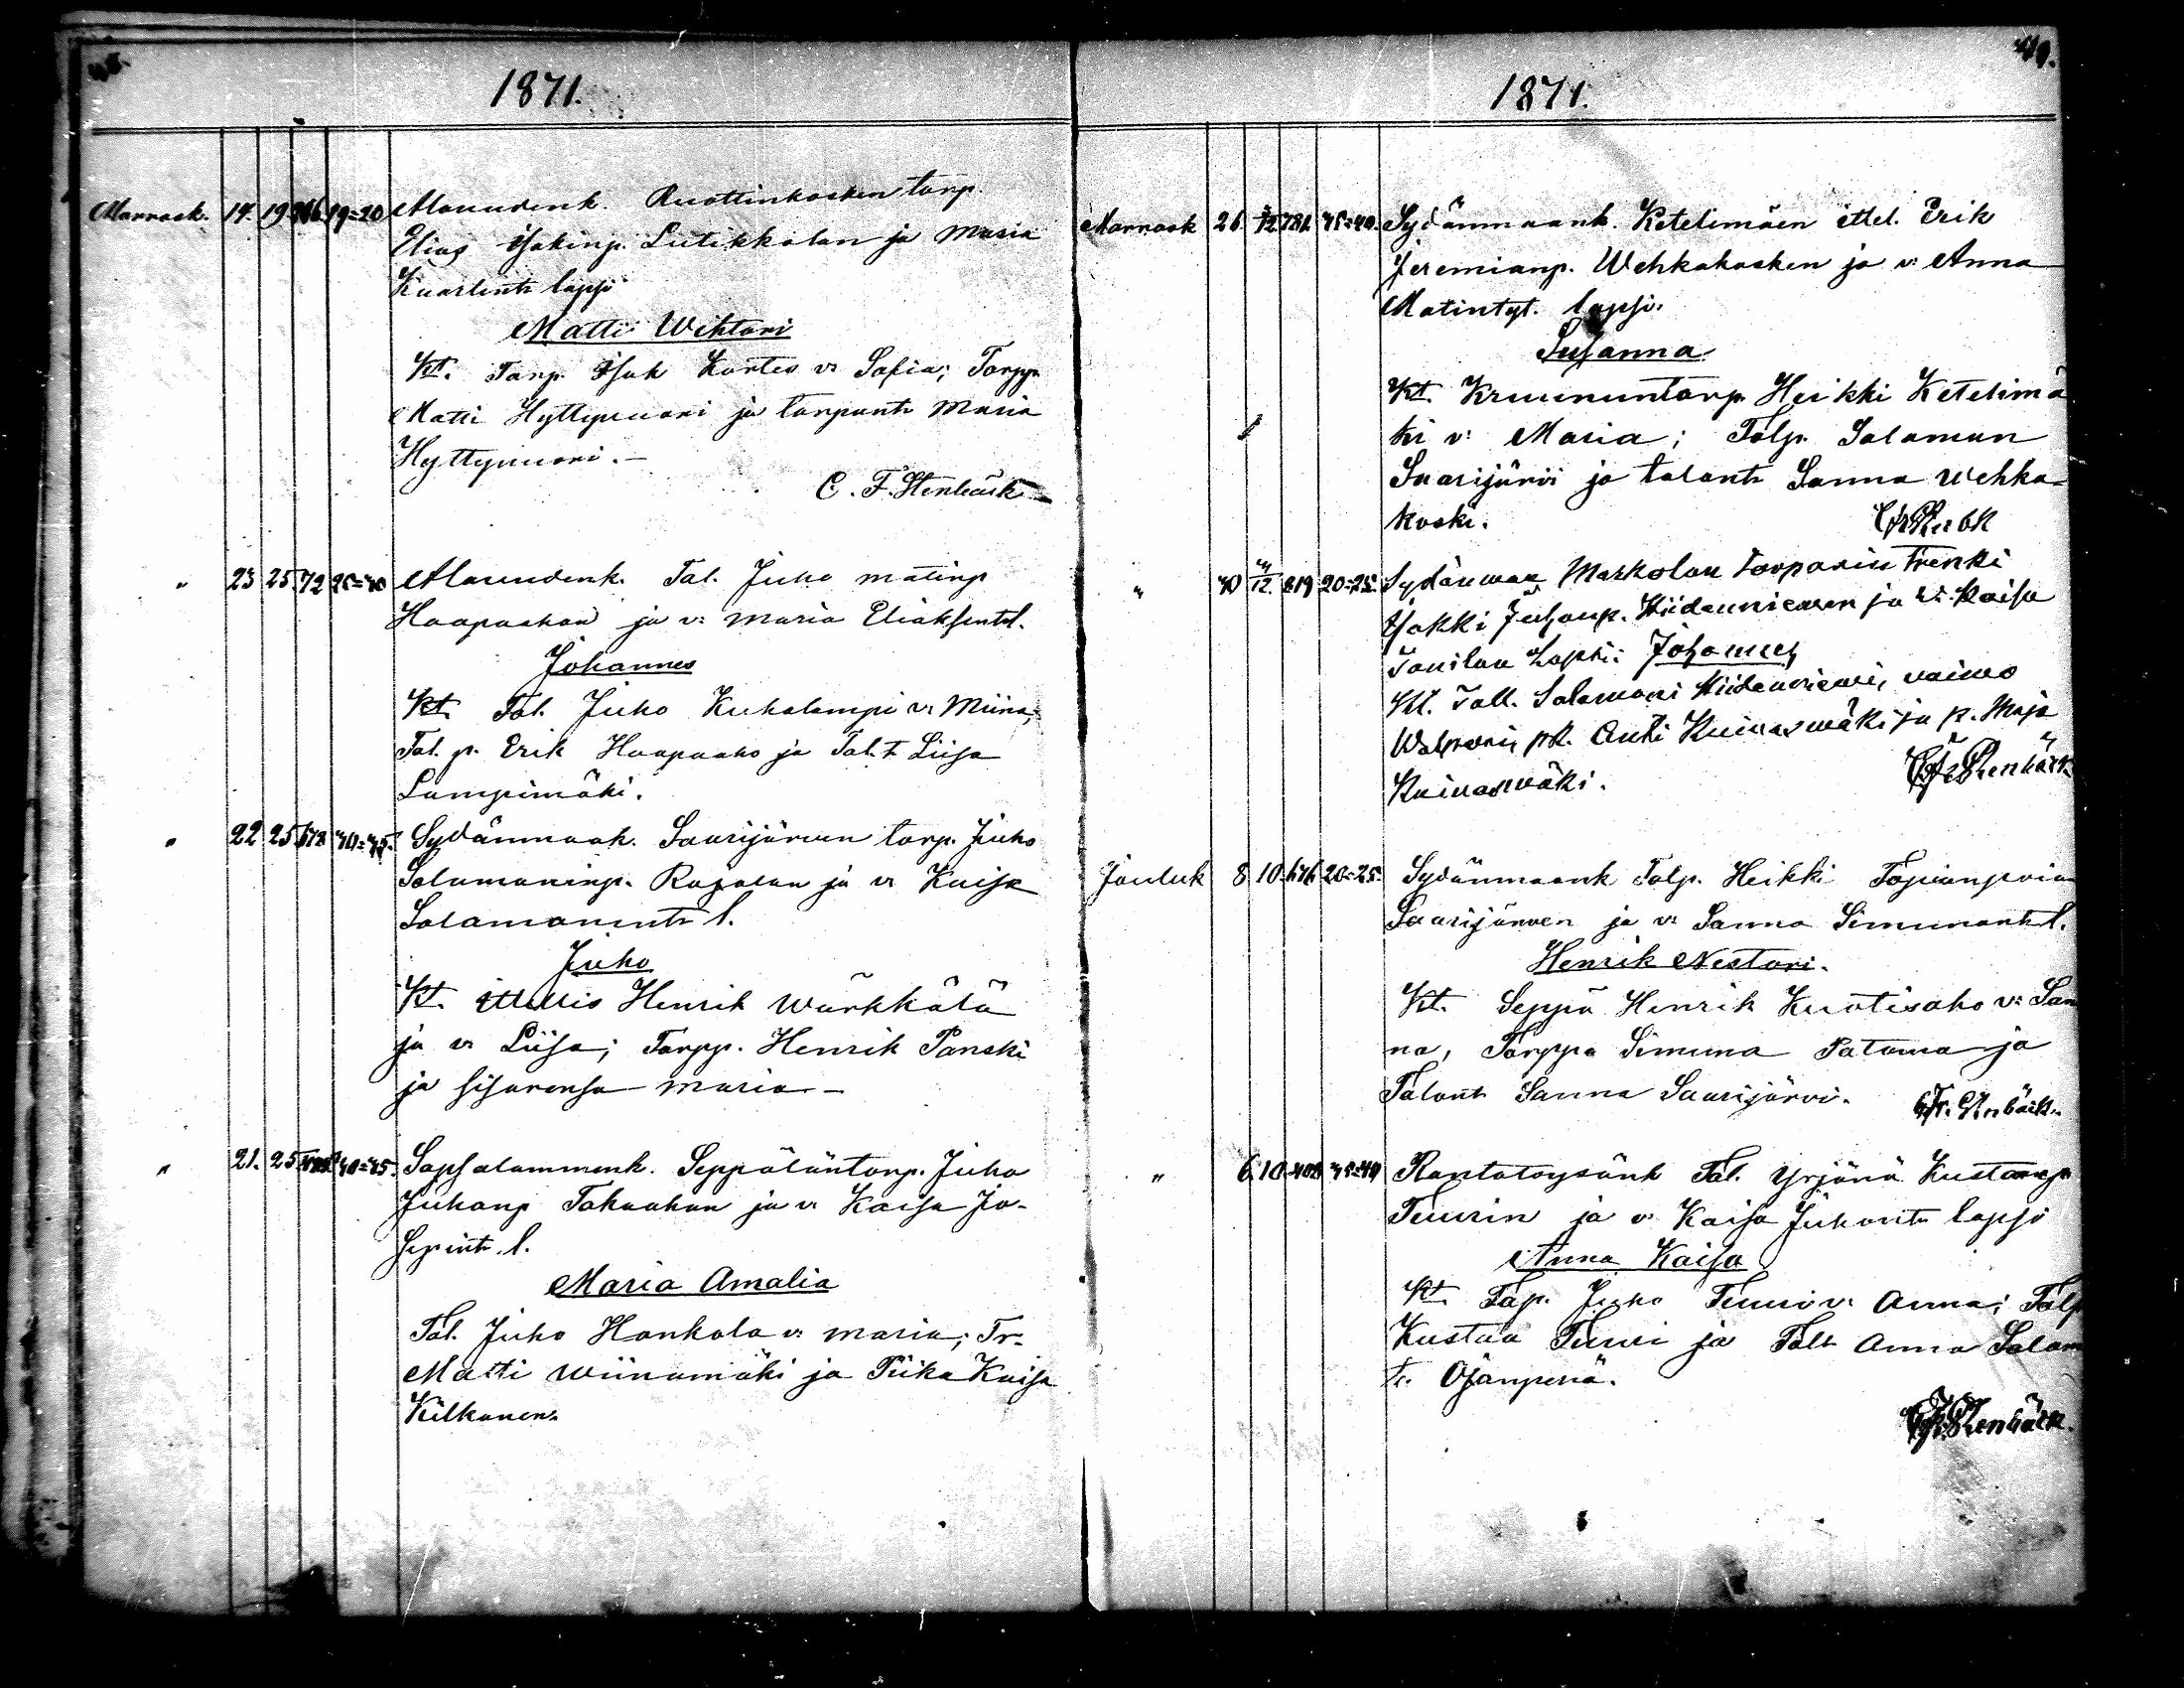 1871.
Marrask. 17. 19. 19=20 Alavudenk. Ruottinkosken torp.
Elias Isakinp. Lutikkalan ja Maria
Kaarlentr lapsi
Matti Wihtori
Kt. Torp. Isak Kortes v: Sofia; Torpp.
Matti Hyttypuuri ja torpantr Maria
Hyttypuuri.—
C. F. Stenbäck
" 23 25 72 Alavudenk. Tal. Juho Matinp
Haapaahon ja v: Maria Eliaksentr l.
Johannes
Kt. Tal. Juho Kuhalampi v: Miina;
Tal. p. Erik Haapaaho ja Tal. t Liisa
Lampimäki.
" 22 25 678 40=45. Sydänmaak. Saarijärven torp. Juho
Salamoninp. Rajalan ja v: Kaisa
Salamonintr l.
Juho
Kt. Ittellis Henrik Wärkkälä
ja v: Liisa; Torpp. Henrik Panski
ja sisarensa Maria—
" 21. 25 40=45. Sapsalammenk. Seppäläntorp. Juho
Juhanp Takaahon ja v: Kaisa Jo-
sepintr l.
Maria Amalia
Tal. Juho Hankola v: Maria; Tr.
Matti Wiinamäki ja Piika Kaisa
Kilkanen.
1871.
49.
Marrask 26. 781. 45=40. Sydänmaank. Ketelimäen ittel. Erik
Jeremianp. Wehkakosken ja v: Anna
Matintyt. lapsi.
Susanna
Kt. Kruununtorp. Heikki Ketelimä
ki v: Maria; Talp. Salamon
Saarijärvi ja talontr Sanna Wehka-
koski.
" 30 4/12. 819 20=25. Sydänmaan Markolan torparin trenki
Isakki Juhanp. Hiidenniemen ja v: Kaisa
Tanilan lapsi: Johannes
Kt. Tall. Salamoni Hiidenniemi, vaimo
Walpuri, pk. Anti Kuivasmäki ja p. Maja
Kuivasmäki.
C F Stenbäck
Jouluk 8 10. 676. 20=25. Sydänmaank Talp. Heikki Topianpoian
Saarijärven ja v: Sanna Simunantr l.
Henrik Nestori.
Kt. Seppä Henrik Kuotisaho v: San
na, Torppa Simuna Patama ja
Talontr Sanna Saarijärvi.
C F. Stenbäck.
" 6. 10. Rantatöysänk Tal. Yrjänä Kustaanp
Tuurin ja v: Kaisa Juhontr lapsi
Anna Kaisa
Kt. Tap. Juho Tuuri v: Anna; Talp
Kustaa Tuuri ja Taltr Anna Salam
tr. Ojanperä.
C F Stenbäck.